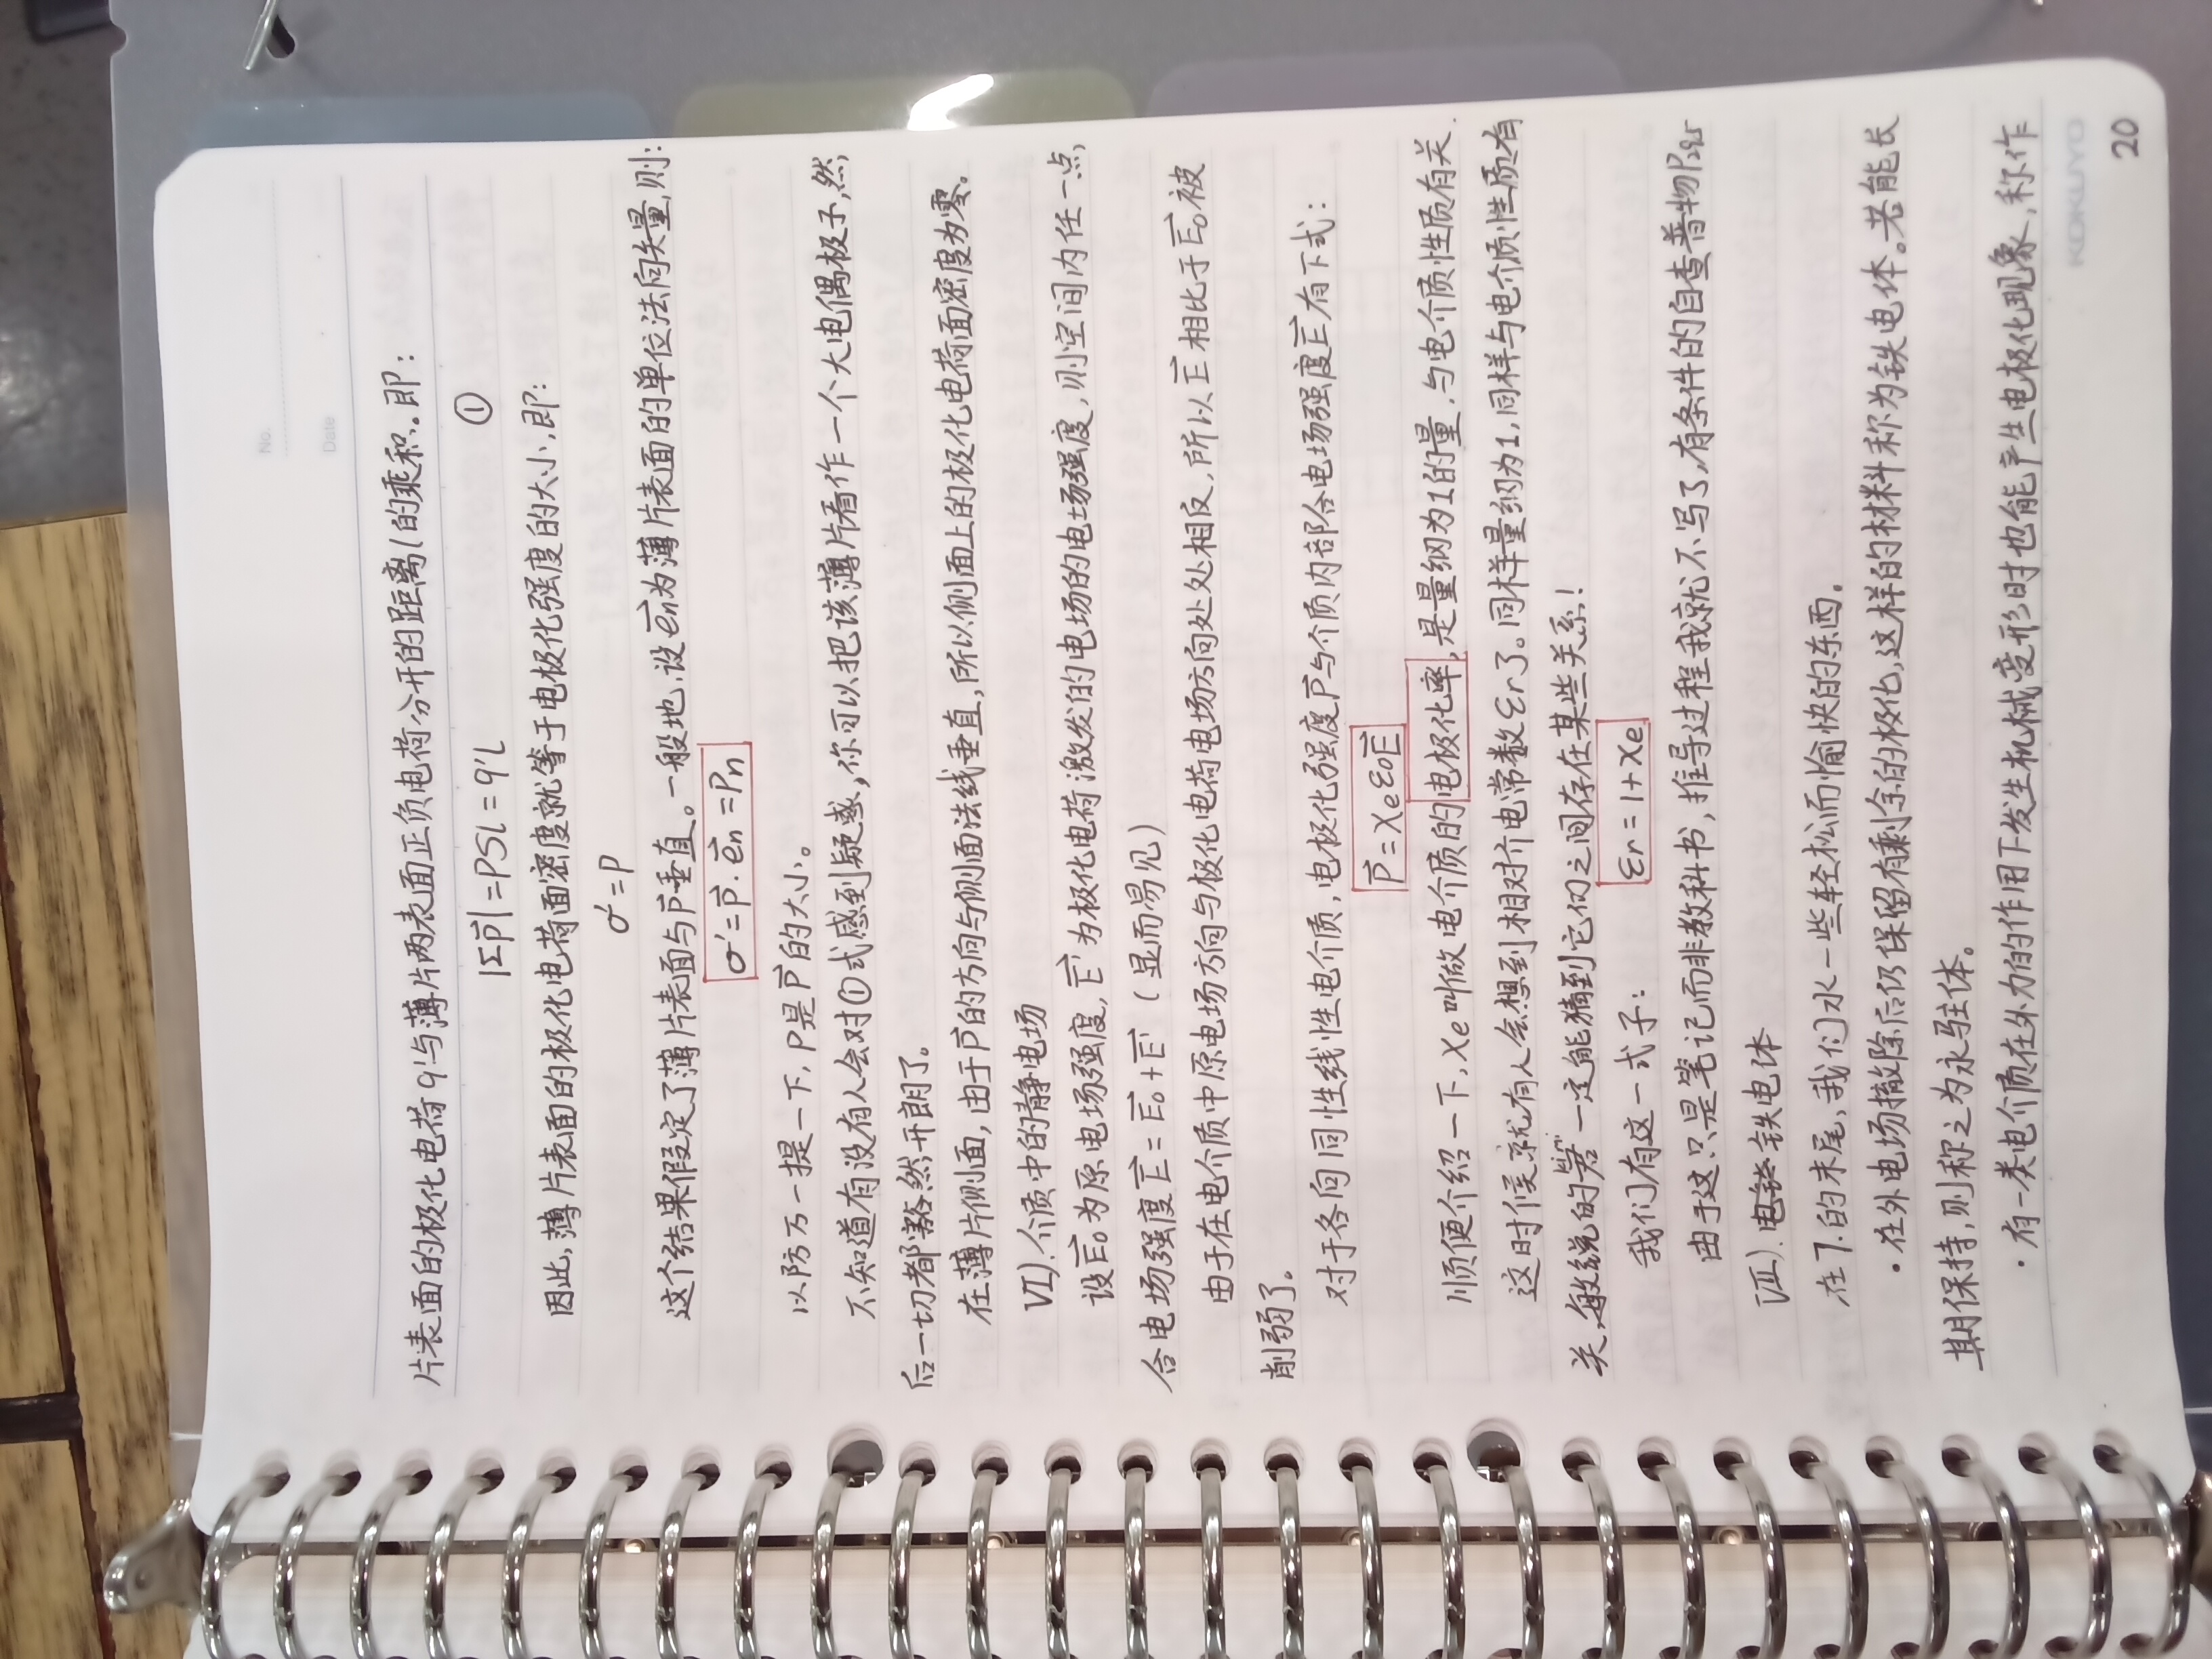 No.
Date
片表面的极化电荷q'与薄片两表面正负电荷分开的距离l的乘积。即：
|Σp⃗|=PSl=q'l ①
因此，薄片表面的极化电荷面密度就等于电极化强度的大小，即：
σ'=P
这个结果假定了薄片表面与P⃗垂直。一般地，设e⃗n为薄片表面的单位法向矢量，则：
σ'=P⃗·e⃗n=Pn
以防万一提一下，P是P⃗的大小。
不知道有没有人会对①式感到疑惑，你可以把该薄片看作一个大电偶极子，然
后一切都豁然开朗了。
在薄片侧面，由于P⃗的方向与侧面法线垂直，所以侧面上的极化电荷面密度为零。
VI).介质中的静电场
设E⃗₀为原电场强度，E⃗'为极化电荷激发的电场的电场强度，则空间内任一点，
合电场强度E⃗=E⃗₀+E⃗'（显而易见）
由于在电介质中原电场方向与极化电荷电场方向处处相反，所以E⃗相比于E⃗₀被
削弱了。
对于各向同性线性电介质，电极化强度P⃗与介质内部合电场强度E⃗有下式：
P⃗=χeε0E⃗
顺便介绍一下，χe叫做电介质的电极化率，是量纲为1的量，与电介质性质有关.
这时候就有人会想到相对介电常数εr了。同样量纲为1，同样与电介质性质有
关，敏锐的君一定能猜到它们之间存在某些关系！
我们有这一式子：
εr=1+χe
由于这只是笔记而非教科书，推导过程我就不写了，有条件的自查普物P₂₂₅
VII).铁电体
在7.的末尾，我们水一些轻松而愉快的东西。
·在外电场撤除后仍保留有剩余的极化，这样的材料称为铁电体。若能长
期保持，则称之为永驻体。
·有一类电介质在外力的作用下发生机械变形时也能产生电极化现象，称作
KOKUYO
20